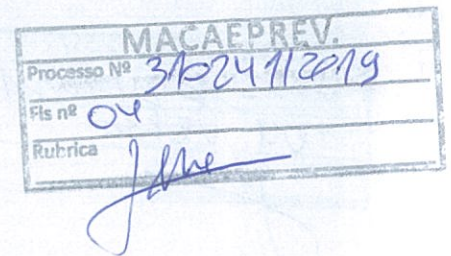 MACAEPREV.
Processo Nº 310241/2019
Fls nº 04
Rubrica